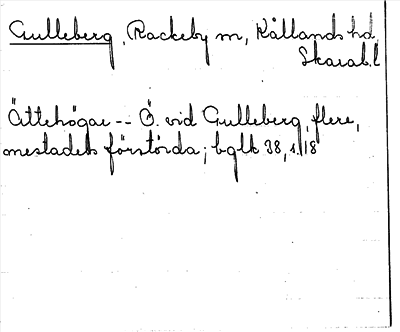 Gulleberg, Rackeby sn, Kållands hd,
Skarab.l
Ättehögar -- Ö. vid Gulleberg, flere,
mestadels förstörda; bglb 38, s. 18